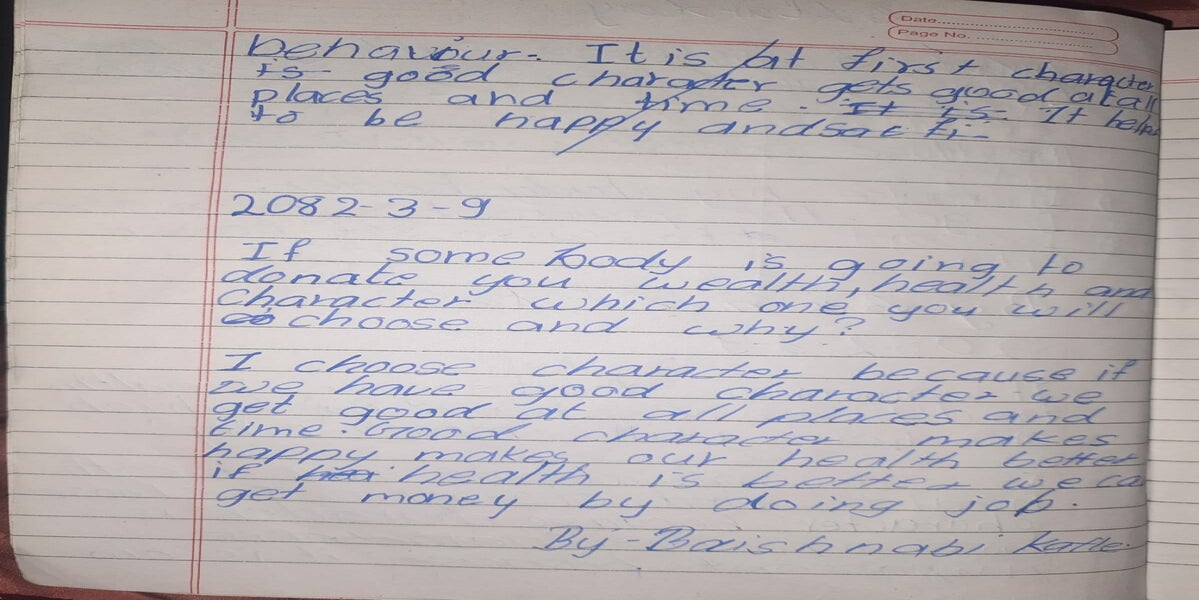 Date
Page No.
behaviour. It is at first character
is good character gets good at all
places and time. It is It helps
to be happy and sacti-
2082-3-9
If some body is going to
donate you wealth, health and
character which one you will
choose and why?
I choose character because if
we have good character we
get good at all places and
time. Good character makes
happy makes our health better
if health is better we ca
get money by doing job.
By-Baishnabi Kafle